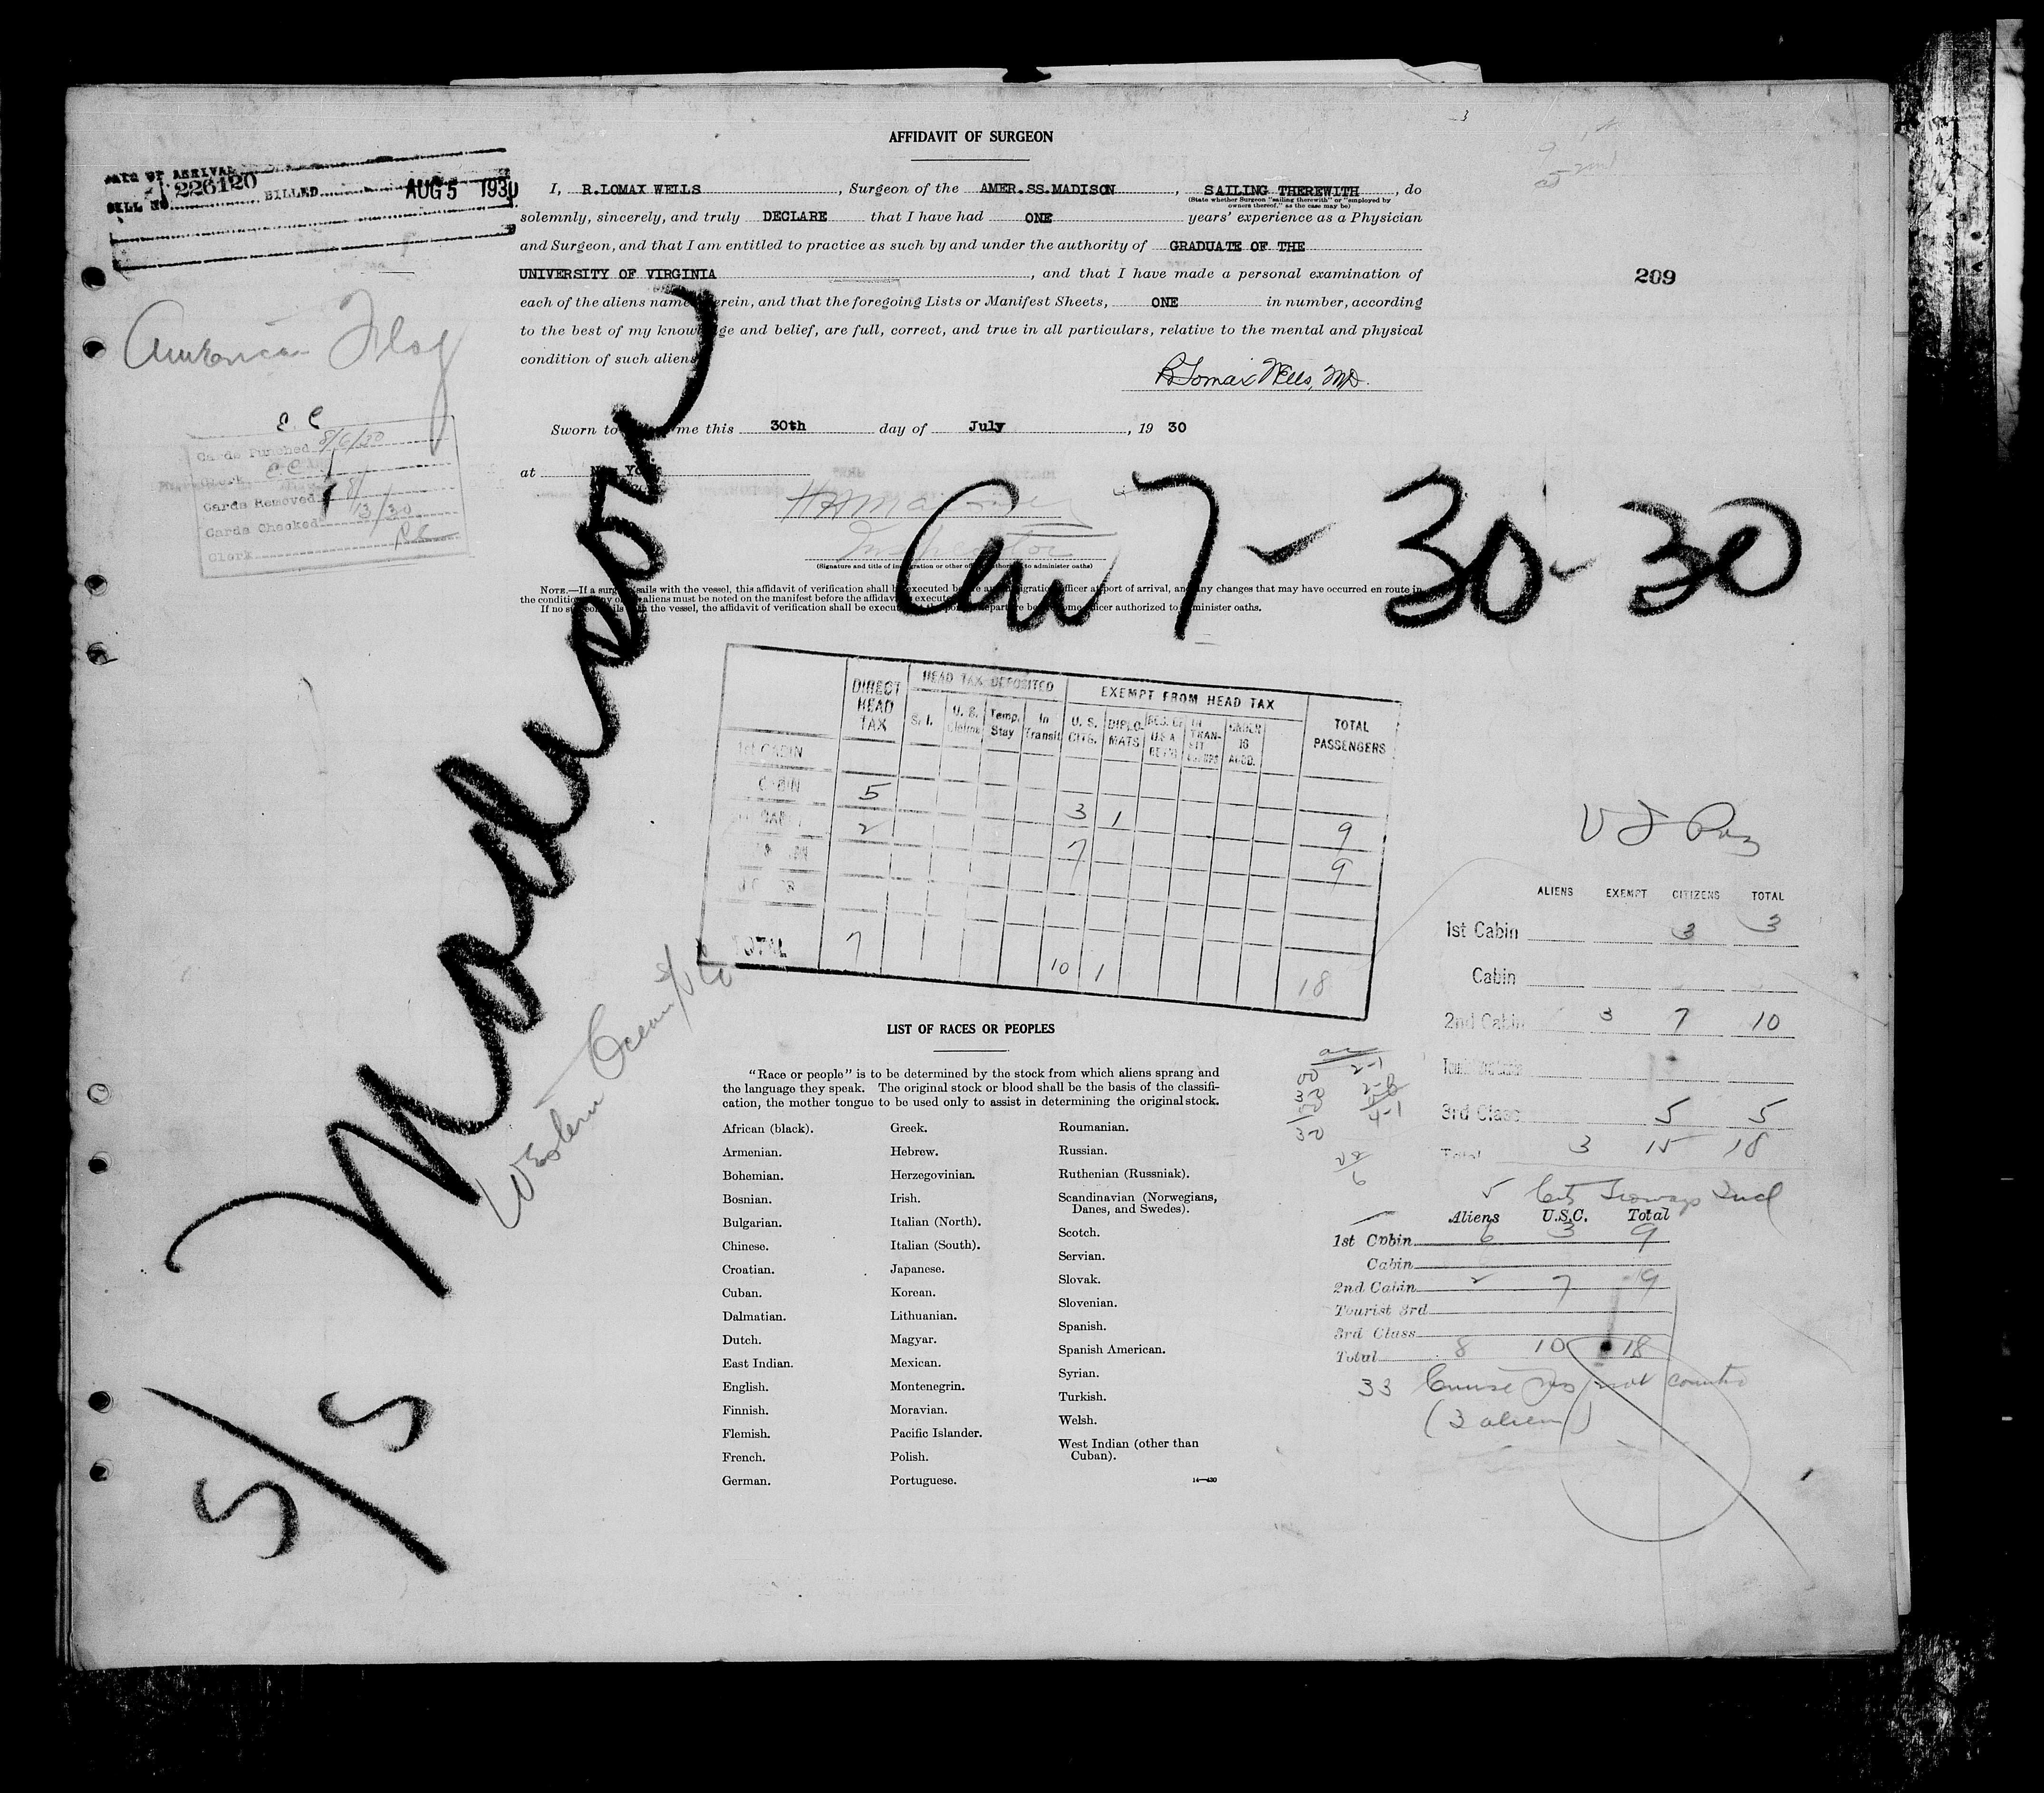 AFFIDAVIT OF SURGEON
DATE OF ARRIVAL
BILL NO. 226120 BILLED AUG 5 1930
I, R.LOMAX WELLS, Surgeon of the AMER.SS.MADISON, SAILING THEREWITH, do
(State whether Surgeon "sailing therewith" or "employed by
owners thereof," as the case may be)
solemnly, sincerely, and truly DECLARE that I have had ONE years' experience as a Physician
and Surgeon, and that I am entitled to practice as such by and under the authority of GRADUATE OF THE
UNIVERSITY OF VIRGINIA, and that I have made a personal examination of
209
each of the aliens named herein, and that the foregoing Lists or Manifest Sheets, ONE in number, according
to the best of my knowledge and belief, are full, correct, and true in all particulars, relative to the mental and physical
condition of such aliens
R Lomax Wells, M.D.
American Flag
E. C
Cards Punched 8/6/30
Clerk E C
Cards Removed
Cards Checked 8/13/30
Clerk
Sworn to me this 30th day of July, 19 30
at New York
Inspector
(Signature and title of immigration or other officer authorized to administer oaths)
Arr 7-30-30
NOTE.—If a surgeon sails with the vessel, this affidavit of verification shall be executed before an immigration officer at port of arrival, and any changes that may have occurred en route in
the condition of any of the aliens must be noted on the manifest before the affidavit is executed
If no surgeon sails with the vessel, the affidavit of verification shall be executed before officer authorized to administer oaths.
S/S Madison
Western Ocean
DIRECT HEAD TAX HEAD TAX DEPOSITED EXEMPT FROM HEAD TAX TOTAL PASSENGERS
S. I. U. S. Claims Temp. Stay In Transit U. S. CITS. DIPLO-MATS RES. OF U.S.A. IN TRAN-SIT UNDER 16 ACCD.
1st CABIN
CABIN 5 3 1 9
2 7 9
TOTAL 7 10 1 18
ALIENS EXEMPT CITIZENS TOTAL
1st Cabin 3 3
Cabin
2nd Cabin 3 7 10
3rd Class 5 5
Total 3 15 18
Aliens U.S.C. Total
1st Cabin 6 3 9
Cabin
2nd Cabin 2 7 9
Tourist 3rd
3rd Class
Total 8 10 18
33 Cruise not counted
(3 aliens)
LIST OF RACES OR PEOPLES
"Race or people" is to be determined by the stock from which aliens sprang and
the language they speak. The original stock or blood shall be the basis of the classifi-
cation, the mother tongue to be used only to assist in determining the original stock.
African (black).
Armenian.
Bohemian.
Bosnian.
Bulgarian.
Chinese.
Croatian.
Cuban.
Dalmatian.
Dutch.
East Indian.
English.
Finnish.
Flemish.
French.
German.
Greek.
Hebrew.
Herzegovinian.
Irish.
Italian (North).
Italian (South).
Japanese.
Korean.
Lithuanian.
Magyar.
Mexican.
Montenegrin.
Moravian.
Pacific Islander.
Polish.
Portuguese.
Roumanian.
Russian.
Ruthenian (Russniak).
Scandinavian (Norwegians,
Danes, and Swedes).
Scotch.
Servian.
Slovak.
Slovenian.
Spanish.
Spanish American.
Syrian.
Turkish.
Welsh.
West Indian (other than
Cuban).
14—430